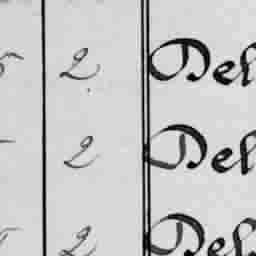 5 2 Del
2 Del
2 Del